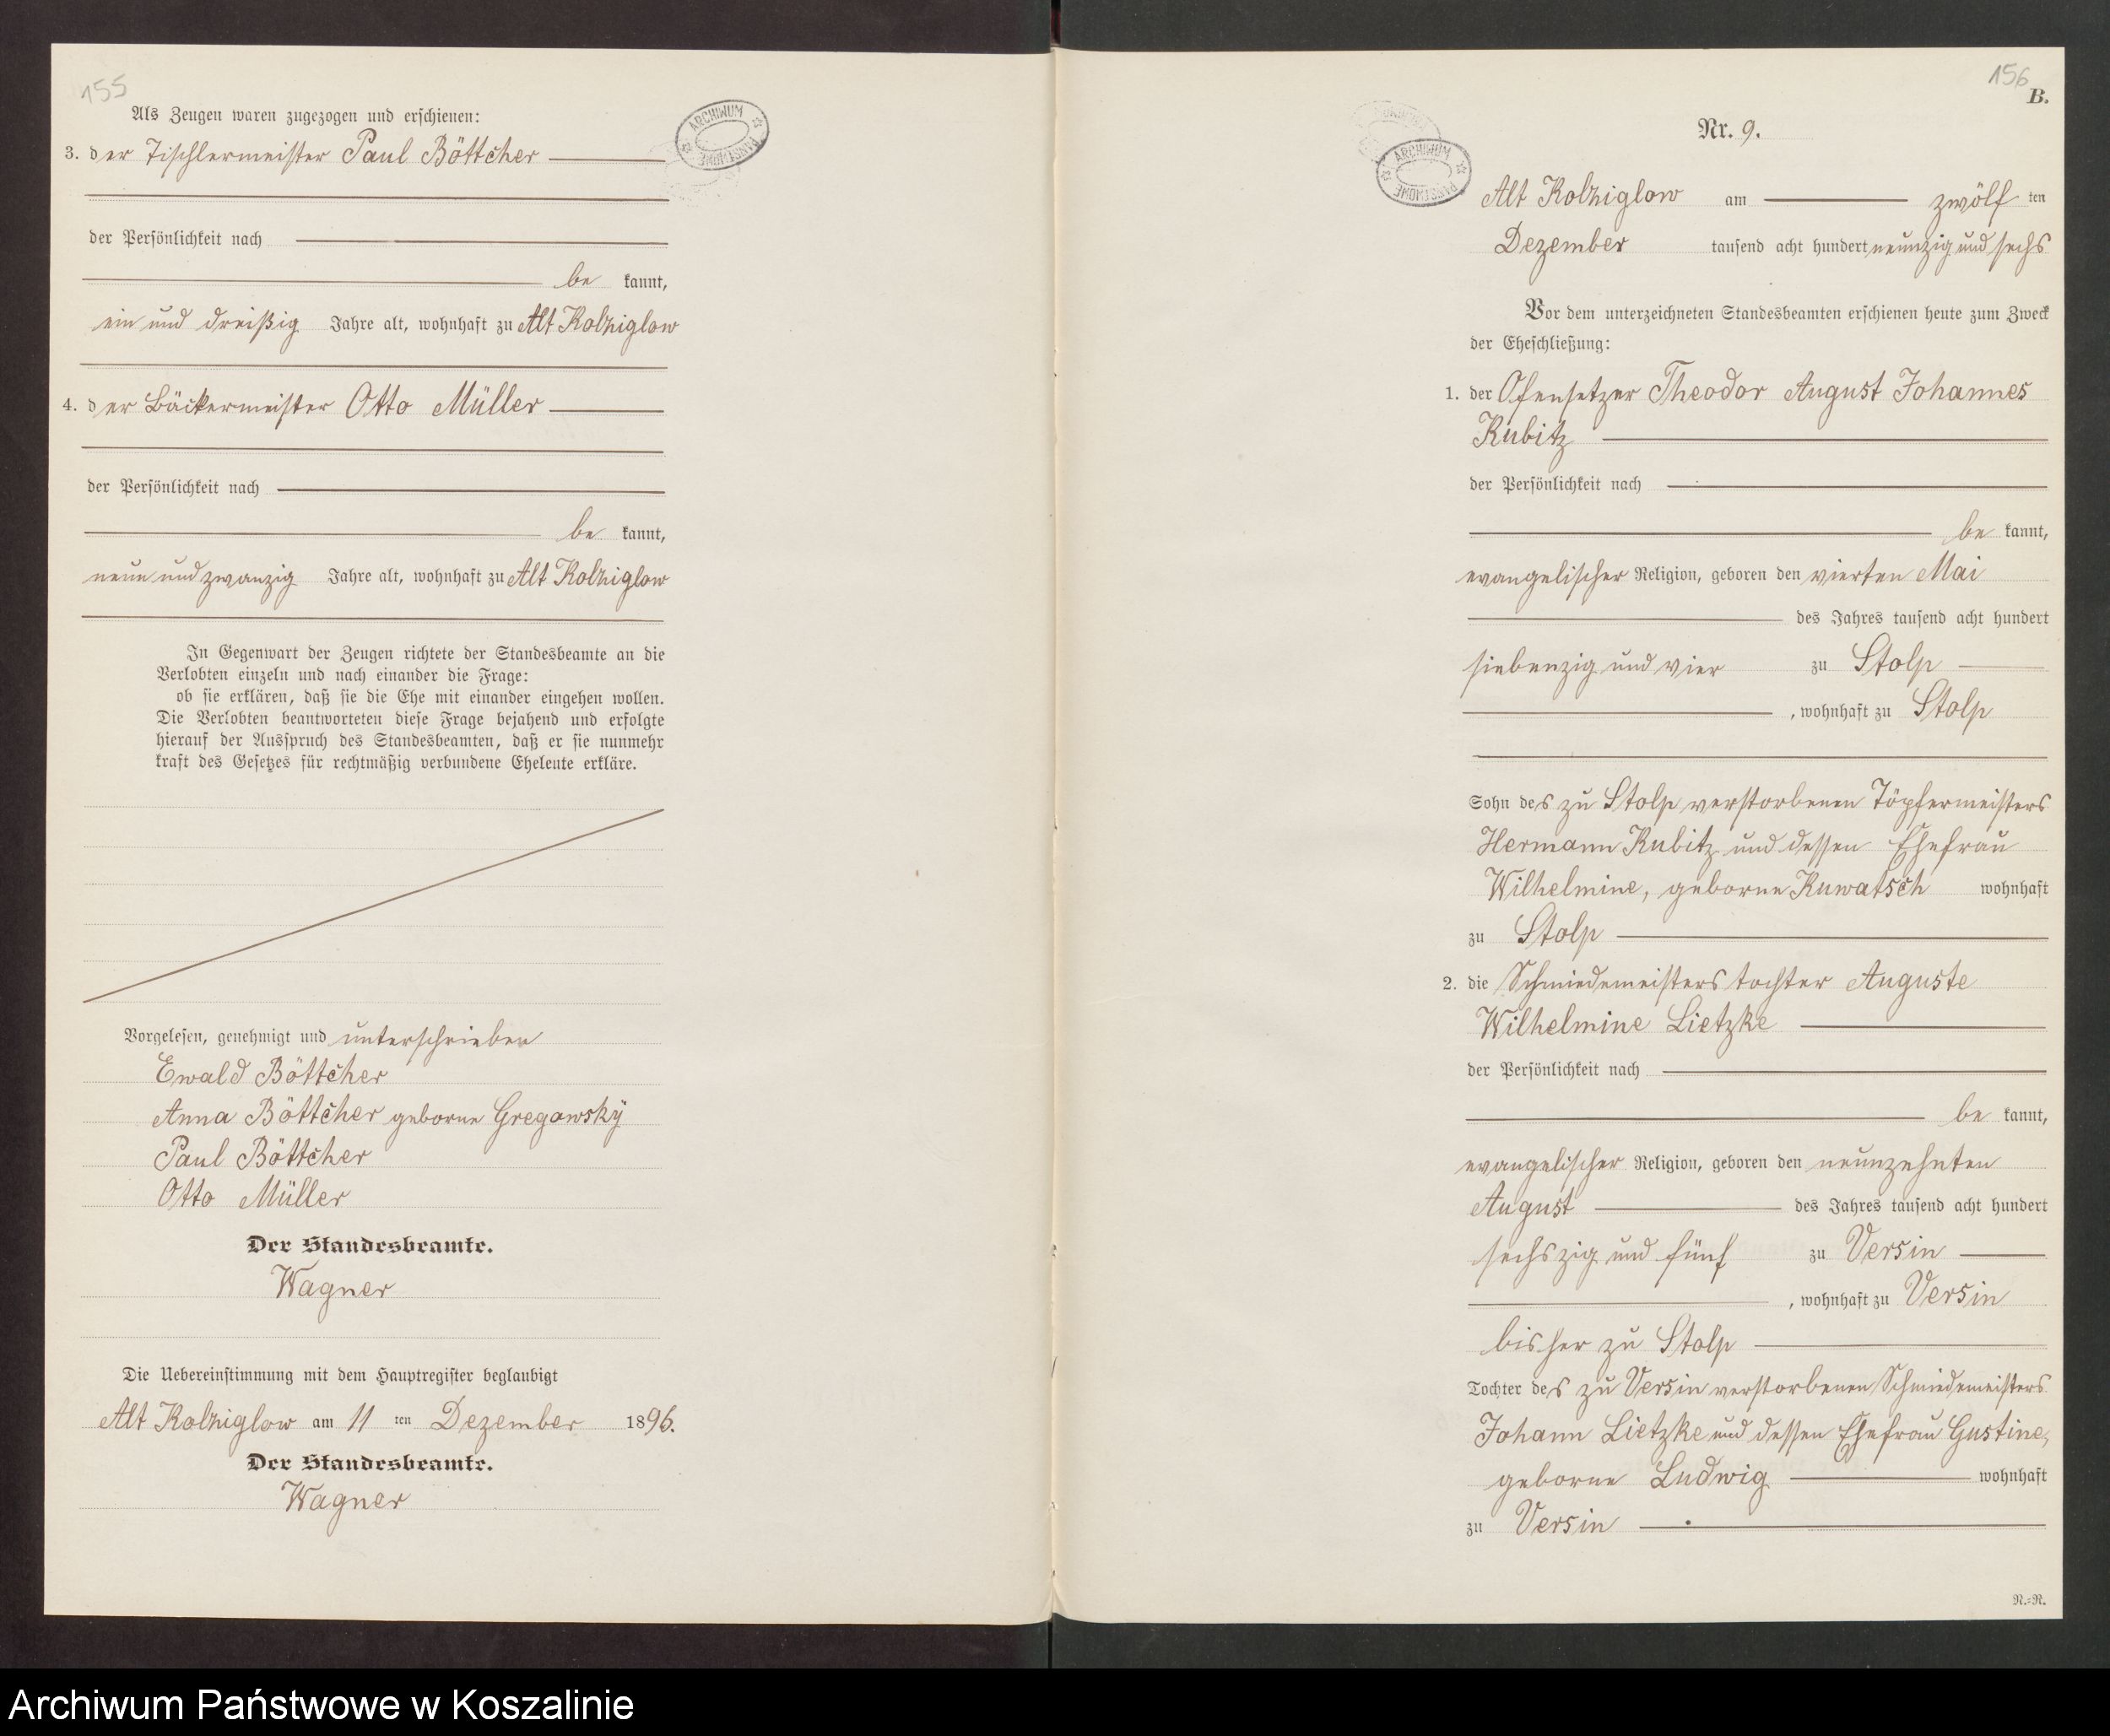 155
Als Zeugen waren zugezogen und erschienen:
3. der Tischlermeister Paul Böttcher
der Persönlichkeit nach
be kannt,
ein und dreißig Jahre alt, wohnhaft zu Alt Kolziglow
4. der Bäckermeister Otto Müller
der Persönlichkeit nach
be kannt,
neun und zwanzig Jahre alt, wohnhaft zu Alt Kolziglow
In Gegenwart der Zeugen richtete der Standesbeamte an die
Verlobten einzeln und nach einander die Frage:
ob sie erklären, daß sie die Ehe mit einander eingehen wollen.
Die Verlobten beantworteten diese Frage bejahend und erfolgte
hierauf der Ausspruch des Standesbeamten, daß er sie nunmehr
kraft des Gesetzes für rechtmäßig verbundene Eheleute erkläre.
Vorgelesen, genehmigt und unterschrieben
Ewald Böttcher
Anna Böttcher geborne Gregowsky
Paul Böttcher
Otto Müller
Der Standesbeamte.
Wagner
Die Uebereinstimmung mit dem Hauptregister beglaubigt
Alt Kolziglow am 11 ten Dezember 1896.
Der Standesbeamte.
Wagner
ARCHIWUM PAŃSTWOWE
156
B.
Nr. 9.
ARCHIWUM PAŃSTWOWE
Alt Kolziglow am zwölf ten
Dezember tausend acht hundert neunzig und sechs
Vor dem unterzeichneten Standesbeamten erschienen heute zum Zweck
der Eheschließung:
1. der Ofensetzer Theodor August Johannes
Kubitz
der Persönlichkeit nach
be kannt,
evangelischer Religion, geboren den vierten Mai
des Jahres tausend acht hundert
siebenzig und vier zu Stolp
, wohnhaft zu Stolp
Sohn des zu Stolp verstorbenen Töpfermeisters
Hermann Kubitz und dessen Ehefrau
Wilhelmine, geborne Kuwatsch wohnhaft
zu Stolp
2. die Schmiedemeisterstochter Auguste
Wilhelmine Lietzke
der Persönlichkeit nach
be kannt,
evangelischer Religion, geboren den neunzehnten
August des Jahres tausend acht hundert
sechszig und fünf zu Versin
, wohnhaft zu Versin
bisher zu Stolp
Tochter des zu Versin verstorbenen Schmiedemeisters
Johann Lietzke und dessen Ehefrau Gustine,
geborne Ludwig wohnhaft
zu Versin
R.=R.
Archiwum Państwowe w Koszalinie